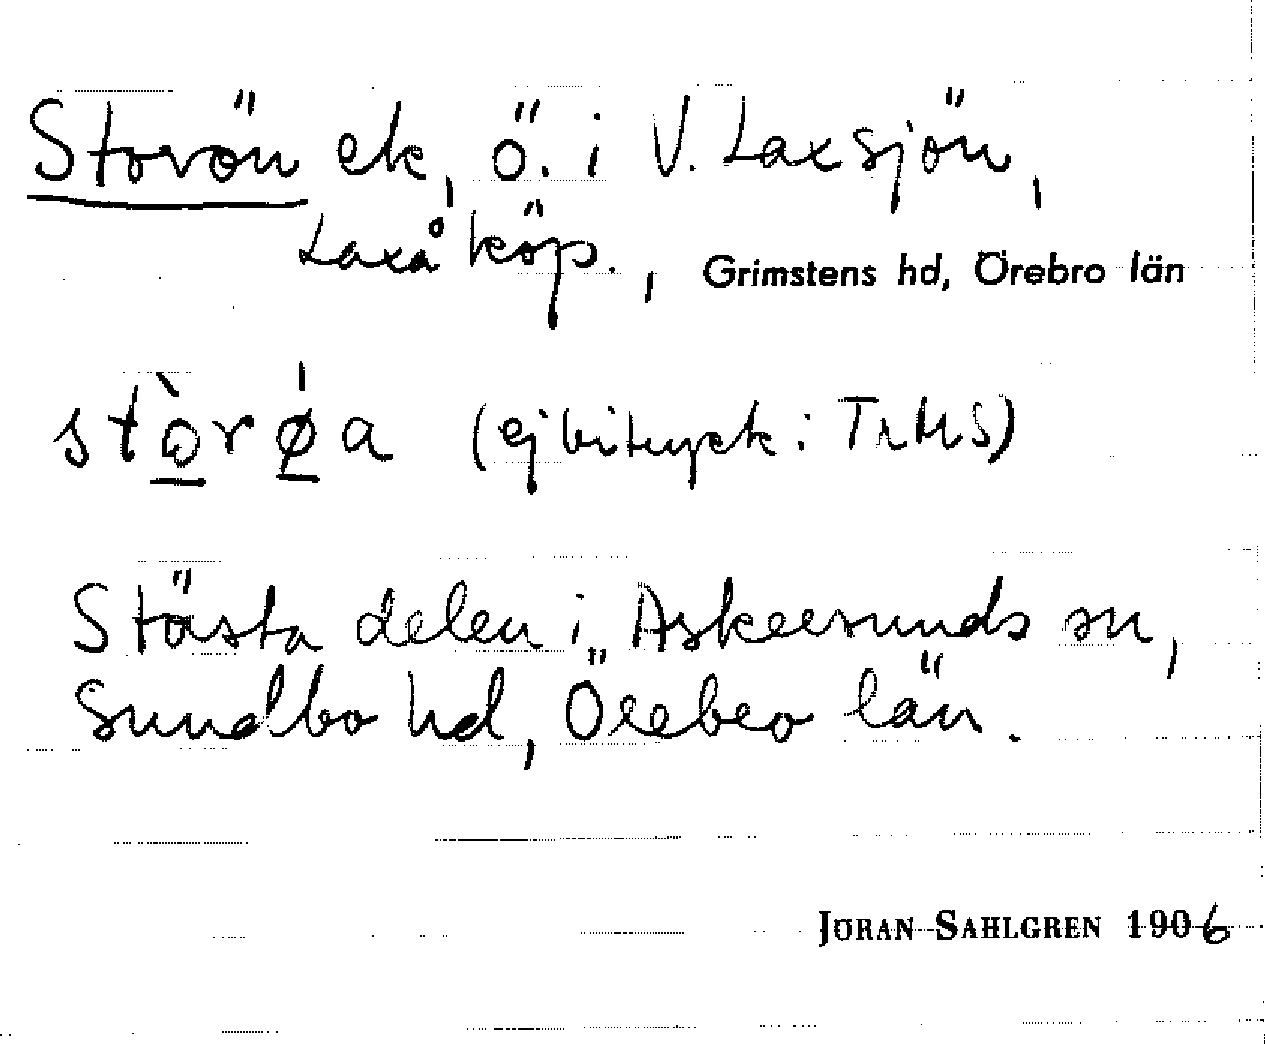 Storön ek, ö. i V. Laxsjön,
Laxå köp., Grimstens hd, Örebro län
stò̠rǿ̠a (ej bitryck i TrMS)
Stösta delen i Askersunds sn,
Sundbo hd, Örebro län.
JÖRAN SAHLGREN 1906